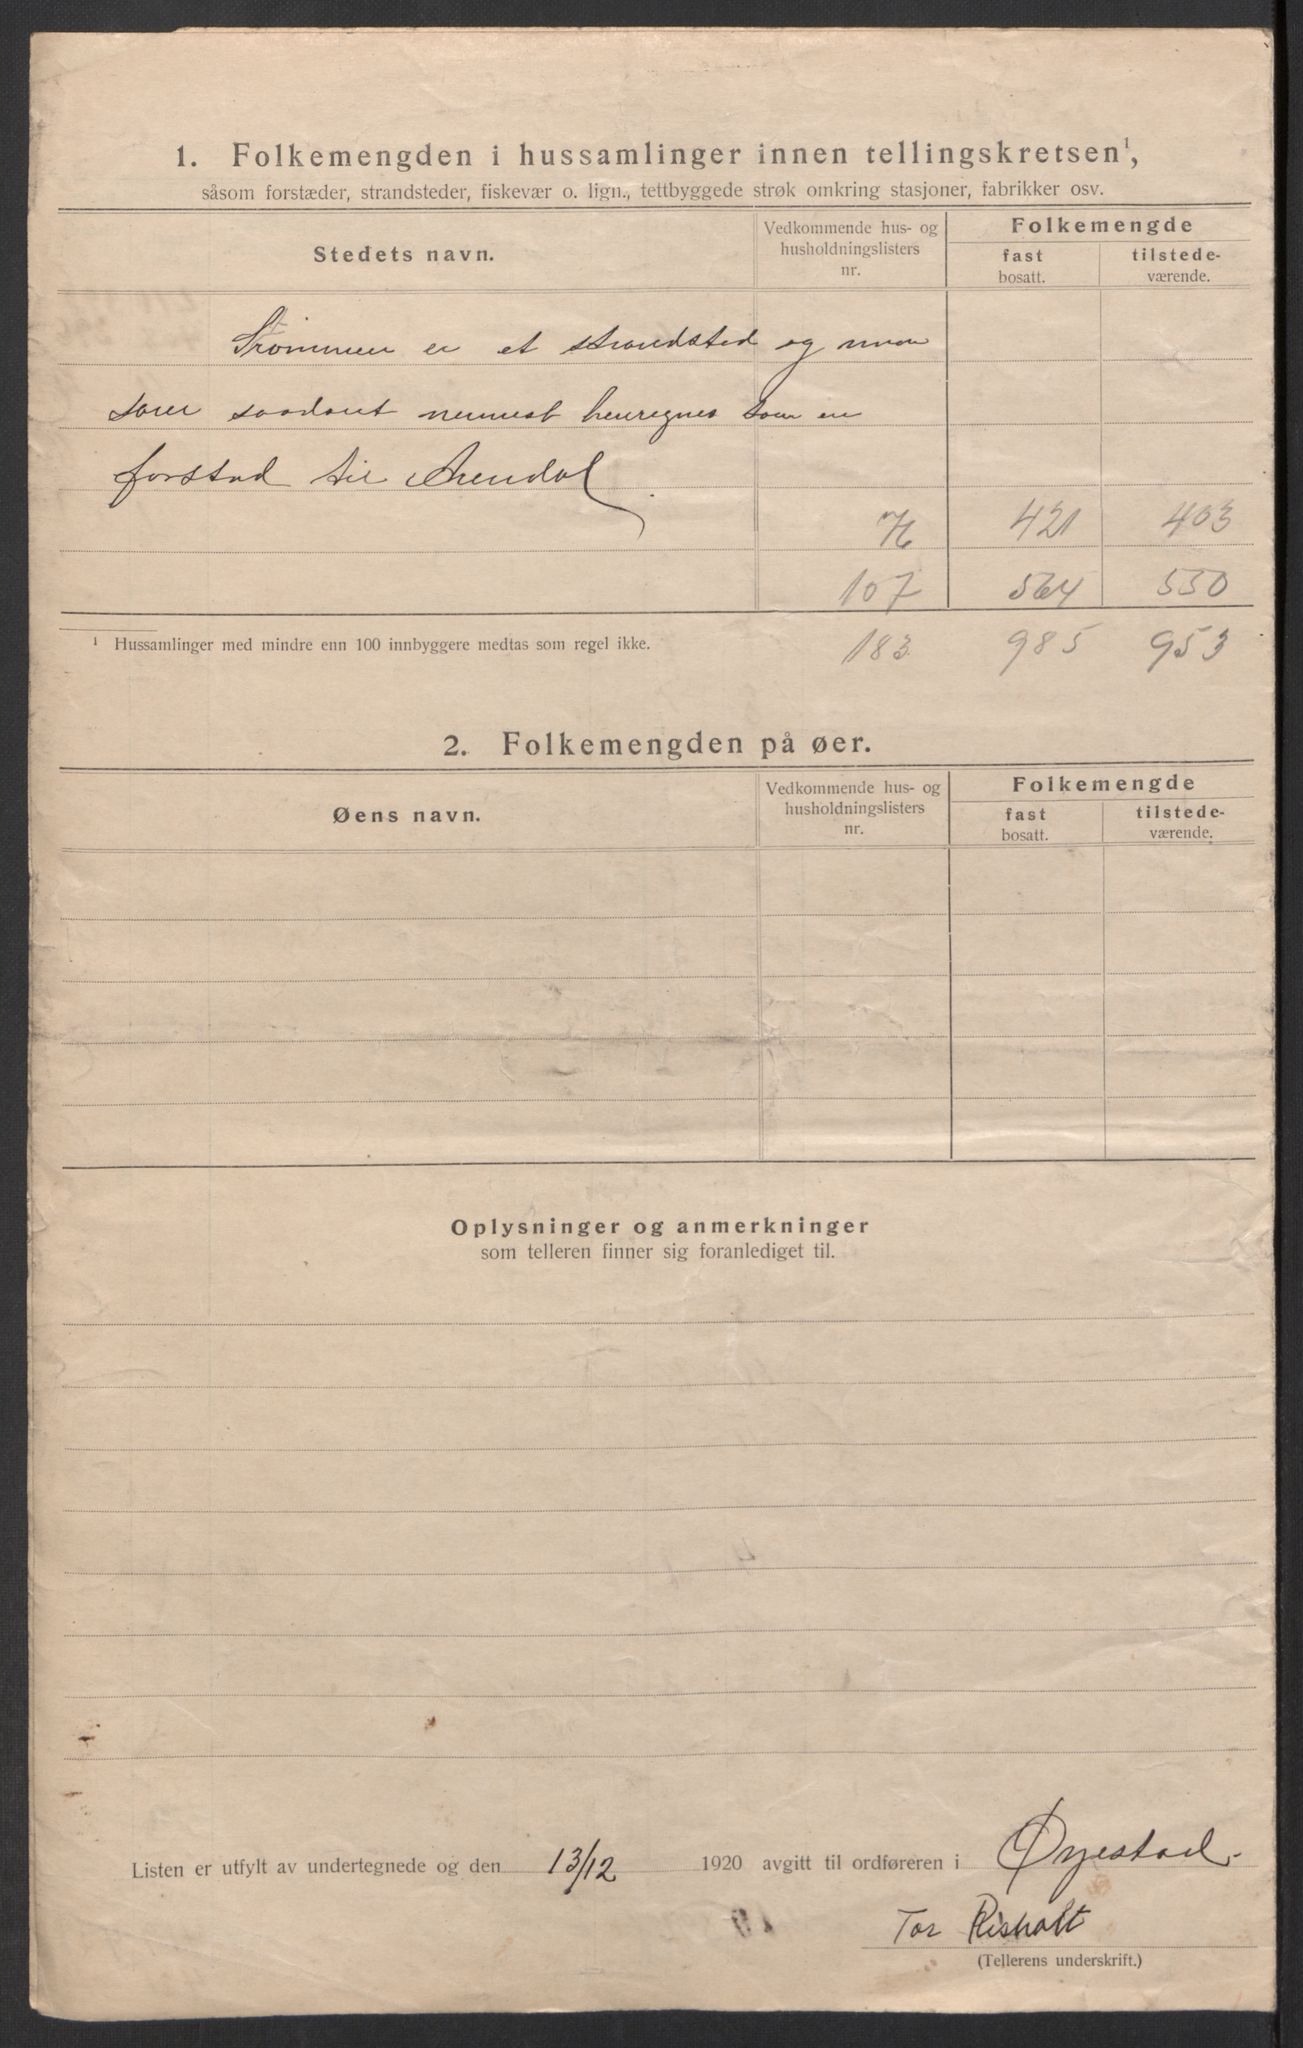 1. Folkemengden i hussamlinger innen tellingskretsen¹,
såsom forstæder, strandsteder, fiskevær o. lign., tettbyggede strøk omkring stasjoner, fabrikker osv.
Stedets navn.
Vedkommende hus- og husholdningslisters nr.
Folkemengde
fast bosatt.
tilstede-værende.
Strømmen er et strandsted og maa
som saadant nærmest henregnes som en
forstad til Arendal.
76 421 403
107 564 550
183 985 953
¹ Hussamlinger med mindre enn 100 innbyggere medtas som regel ikke.
2. Folkemengden på øer.
Øens navn.
Vedkommende hus- og husholdningslisters nr.
Folkemengde
fast bosatt.
tilstede-værende.
Oplysninger og anmerkninger
som telleren finner sig foranlediget til.
Listen er utfylt av undertegnede og den 13/12 1920 avgitt til ordføreren i Øyestad.
Tor Risholt
(Tellerens underskrift.)